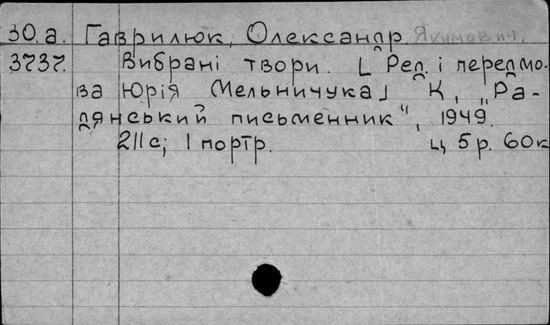 30.а. Гаврилюк, Олександр Якимович.
3737. Вибрані твори. [Ред. і передмо-
ва Юрія Мельничука] К, „Ра-
дянський письменник", 1949.
211с; 1 портр. Ц 5р. 60к